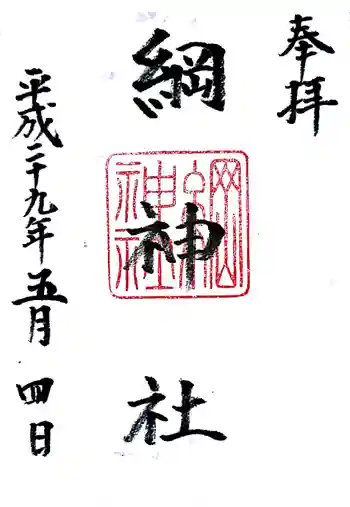 奉拝
綱神社
綱神社
平成二十九年五月四日